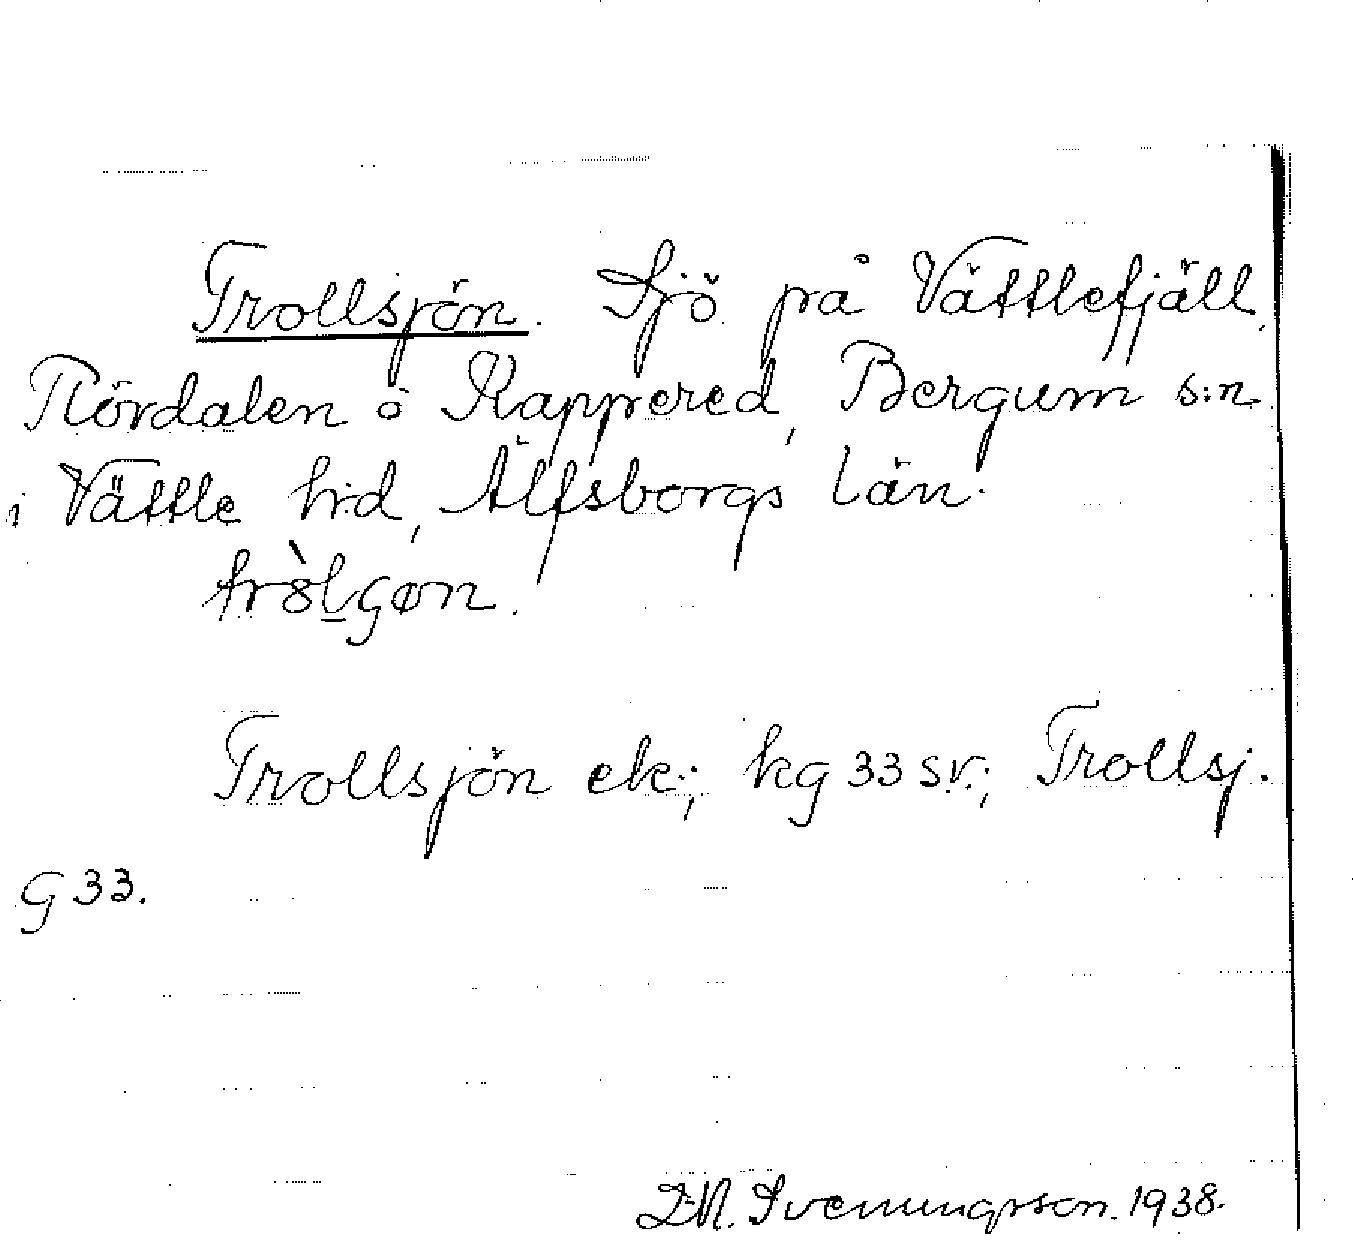 Trollsjön. Sjö på Vättlefjäll,
Rördalen o Rappered, Bergum s:n
i Vättle h:d, Älfsborgs län.
Trollsjön ek.; kg 33 sv.; Trollsj.
G 33.
Svenungsson. 1938.